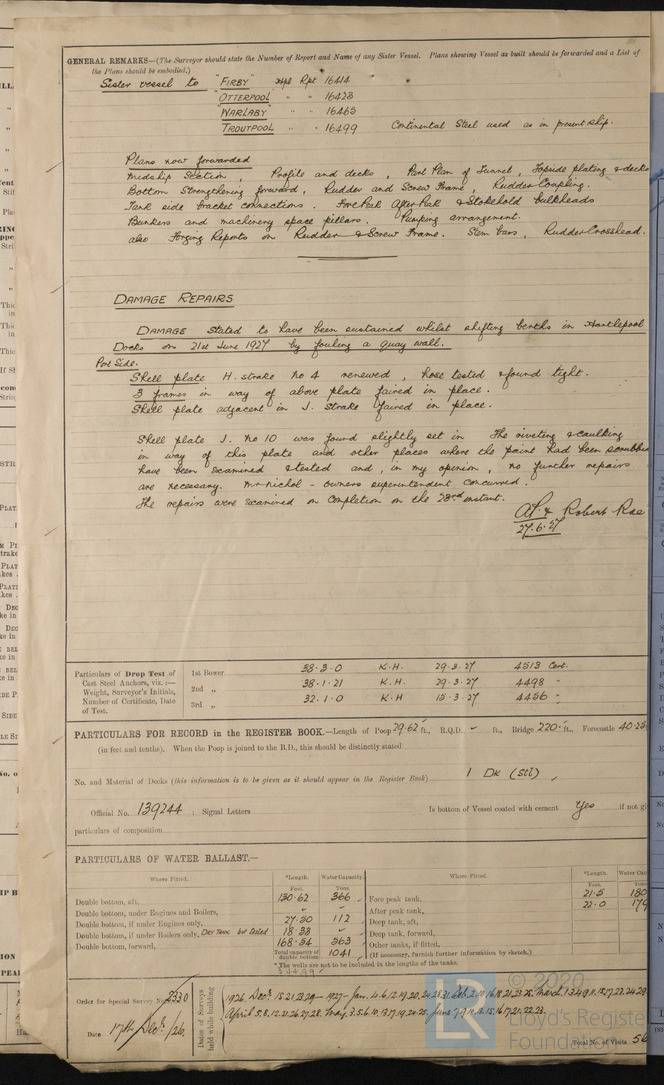 GENERAL REMARKS—(The Surveyor should state the Number of Report and Name of any Sister Vessel. Plans showing Vessel as built should be forwarded and a List of
the Plans should be embodied.)
Sister vessel to "FIRBY" Hpl Rpt 16414
"OTTERPOOL" " " 16423
"WARLABY" " " 16463
TROUTPOOL " " 16499 Continental Steel used as in present ship.
Plans now forwarded
Midship Section, Profile and decks, Part Plan of Tunnel, Topside plating & decks
Bottom Strengthening forward, Rudder and Screw Frame, Rudder Coupling.
Tank side bracket connections. Fore Peak After Peak & Stokehold bulkheads
Bunkers and machinery space pillars. Pumping arrangement.
also Forging Reports on Rudder & Screw Frame. Stem bars, Rudder Crosshead.
DAMAGE REPAIRS
DAMAGE stated to have been sustained whilst shifting berths in Hartlepool
Docks on 21st June 1927 by fouling a quay wall.
Port Side.
Shell plate H. strake No 4 renewed, hose tested & found tight.
3 frames in way of above plate faired in place.
Shell plate adjacent in J. Strake faired in place.
Shell plate J. No 10 was found slightly set in The riveting & caulking
in way of this plate and other places where the paint had been scrubbed
have been examined & tested and, in my opinion, no further repairs
are necessary. Mr Nichol - owners superintendent concurred.
The repairs were examined on completion on the 23rd instant.
Robert Rae
27.6.27
Particulars of Drop Test of
Cast Steel Anchors, viz.:—
Weight, Surveyor's Initials,
Number of Certificate, Date
of Test.
1st Bower 38.3.0 K.H. 29.3.27 4513 Cert.
2nd " 38.1.21 K.H. 29.3.27 4498 "
3rd " 32.1.0 K.H 15.3.27 4456 "
PARTICULARS FOR RECORD in the REGISTER BOOK.—Length of Poop 29.62 ft., R.Q.D. - ft., Bridge 220. ft., Forecastle 40.25
(in feet and tenths). When the Poop is joined to the B.D., this should be distinctly stated
No. and Material of Decks (this information is to be given as it should appear in the Register Book) 1 Dk (Stl)
Official No. 139244 ; Signal Letters Is bottom of Vessel coated with cement Yes if not gi
particulars of composition
PARTICULARS OF WATER BALLAST.—
Where Fitted. *Length. Water Capacity. Where Fitted. *Length. Water Cap
Feet. Tons. Feet. Tons.
Double bottom, aft, 130.62 366 Fore peak tank, 21.5 180
Double bottom, under Engines and Boilers, - - After peak tank, 22.0 179
Double bottom, if under Engines only, 27.50 112 Deep tank, aft,
Double bottom, if under Boilers only, Dry Tank but tested 18.33 - Deep tank, forward,
Double bottom, forward, 168.54 563 Other tanks, if fitted,
Total capacity of double bottom 1041 (If necessary, furnish further information by sketch.)
*The wells are not to be included in the lengths of the tanks.
344.99
Order for Special Survey No. 2330
Date 17th Dec. /26
Dates of Surveys
held while building
© 2020
Lloyd's Registe
Foundation
Total No. of Visits 56